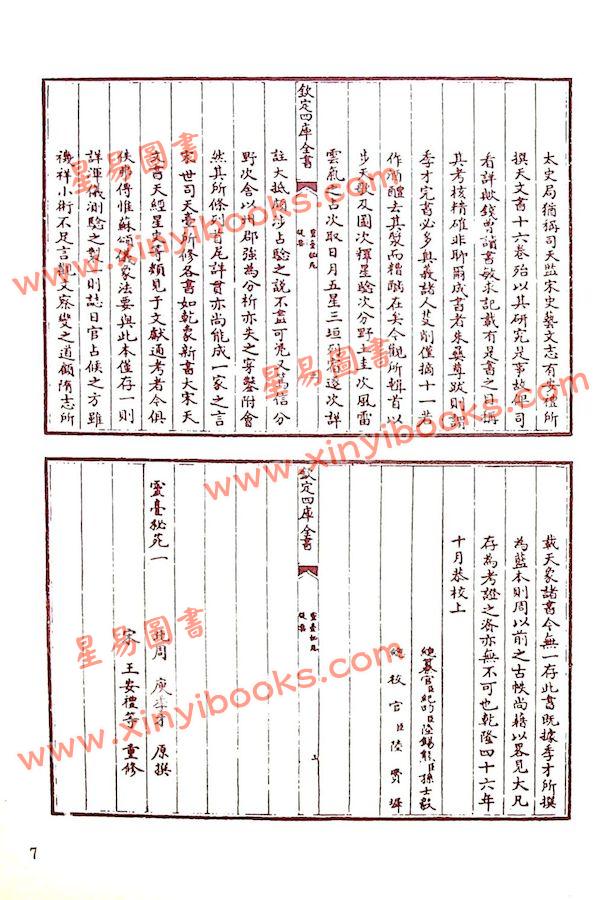 太史局猶稱司天監宋史藝文志有安禮所
撰天文書十六卷殆以其研究是事故俾司
看詳歟錢曾讀書敏求記載有是書之目稱
其考核精確非聊爾成書者朱彝尊跋則謂
季才完書必多奥義諸人芟削僅摘十一若
作酒醴去其漿而糟醨在矣今觀所輯首以
步天歌及圖次釋星驗次分野土圭次風雷
雲氣之占次取日月五星三垣列宿逐次詳
欽定四庫全書
靈臺秘苑
提要
註大抵頗涉占驗之說不盡可凭又篤信分
野次舍以州郡強為分析亦失之穿鑿附會
然其所條列首尾詳貫亦尚能成一家之言
宋世司天臺所修各書如乾象新書大宋天
文書天經星史等類見于文獻通考者今俱
佚弗傳惟蘇頌儀象法要與此本僅存一則
詳渾儀測驗之製一則誌日官占候之方雖
禨祥小術不足言觀文察變之道顧隋志所
載天象諸書今無一存此書既據季才所撰
為藍本則周以前之古帙尚藉以畧見大凡
存為考證之資亦無不可也乾隆四十六年
十月恭校上
總纂官臣紀昀臣陸錫熊臣孫士毅
總校官臣陸費墀
欽定四庫全書
靈臺秘苑
提要
靈臺秘苑一
北周 庾季才 原撰
宋 王安禮等 重修
7
星易圖書
www.xinyibooks.com
星易圖書
www.xinyibooks.com
星易圖書
www.xinyibooks.com
星易圖書
www.xinyibooks.com